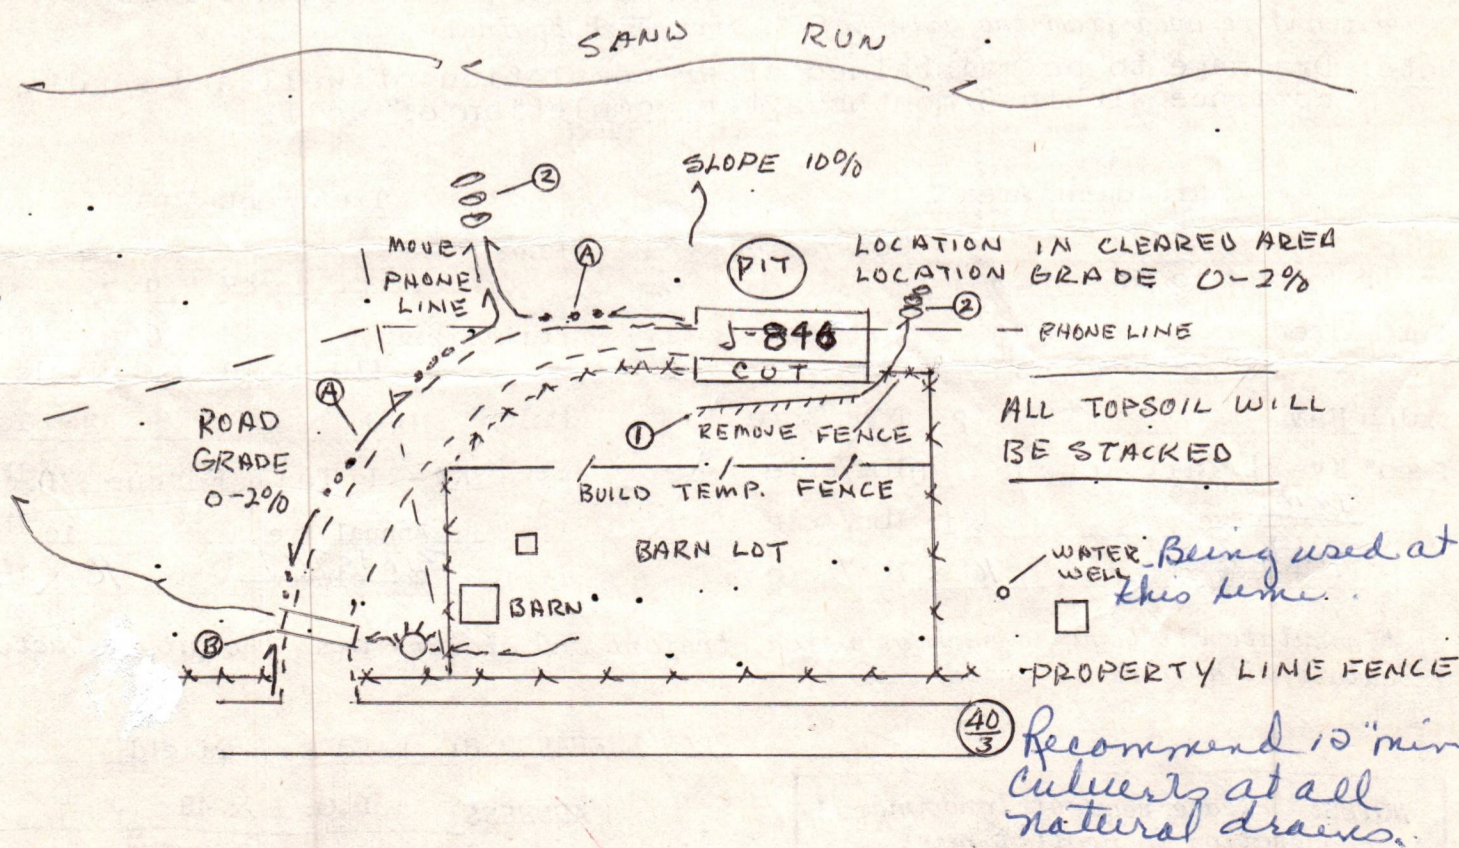 SAND RUN
SLOPE 10%
2
MOVE
PHONE
LINE
A
PIT
LOCATION IN CLEARED AREA
LOCATION GRADE 0-2%
2
J-846
PHONE LINE
CUT
A
ROAD
GRADE
0-2%
1
REMOVE FENCE
ALL TOPSOIL WILL
BE STACKED
BUILD TEMP. FENCE
BARN LOT
WATER
WELL
Being used at
this time.
BARN
B
PROPERTY LINE FENCE
40
3
Recommend 12" min
culverts at all
natural drains.